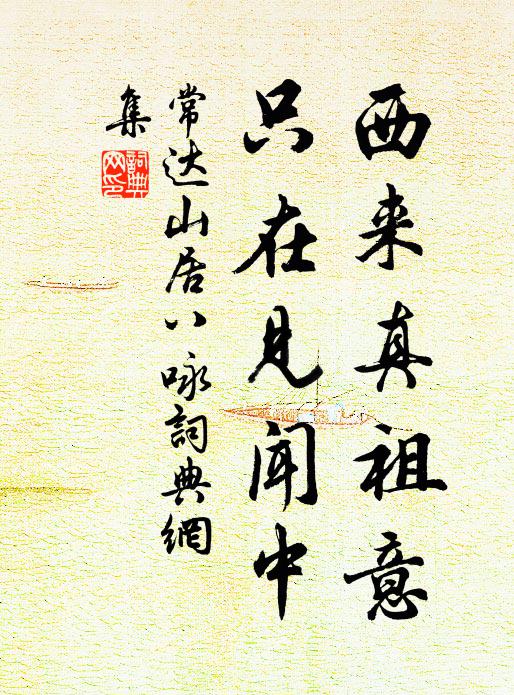 西来真祖意
只在见闻中
常达山居八咏词典網
集
詞典网印